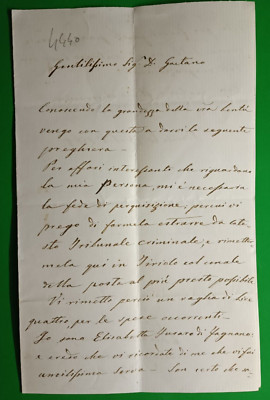 4440
Gentilissimo Sig.r D. Gaetano
Conoscendo la grandezza della sua bontà
vengo con questa a darvi la seguente
preghiera -
Per affari interessanti che riguardano
la mia Persona, mi è necessaria
la fede di perquisizione, perciò vi
prego di farmela estrarre da cote-
sto Tribunale Criminale, e rimetter-
mela qui in Tiriolo col mezzo
della posta al più presto possibile
Vi rimetto perciò un vaglia di lire
quattro, per le spese occorrenti -
Io sono Elisabetta di
e credo che vi ricordate di me che vi fui
umilissima serva - Son certo che